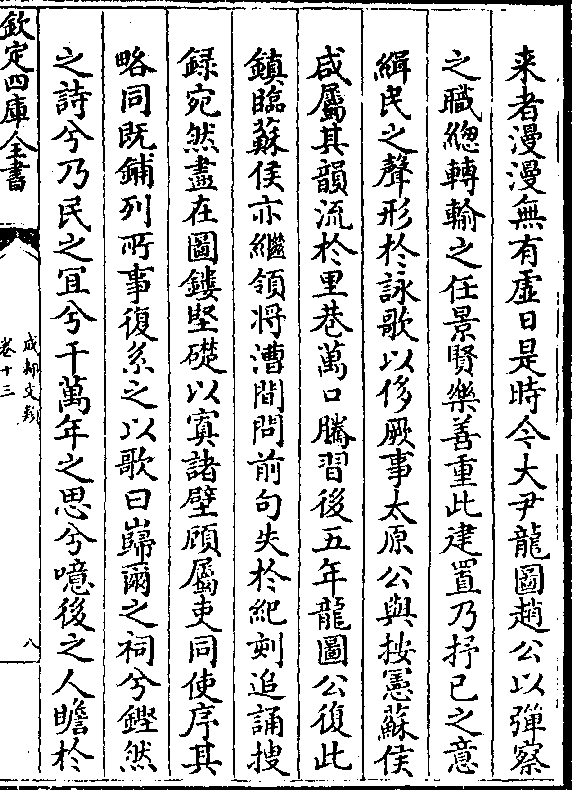 来者漫漫無有虛日是時今大尹龍圖趙公以彈察
之職總轉輸之任景賢樂善重此建置乃抒已之意
緝民之聲形於詠歌以侈厥事太原公與按憲蘇侯
咸屬其韻流於里巷萬口騰習後五年龍圖公復此
鎮臨蘇侯亦繼領將漕間問前句失於紀刻追誦搜
録宛然盡在圖鏤堅礎以寘諸壁顧屬吏同使序其
略同既鋪列所事復系之以歌曰巋爾之祠兮鏗然
之詩兮乃民之冝兮千萬年之思兮噫後之人瞻於
欽定四庫全書
成都文類
卷十三
八